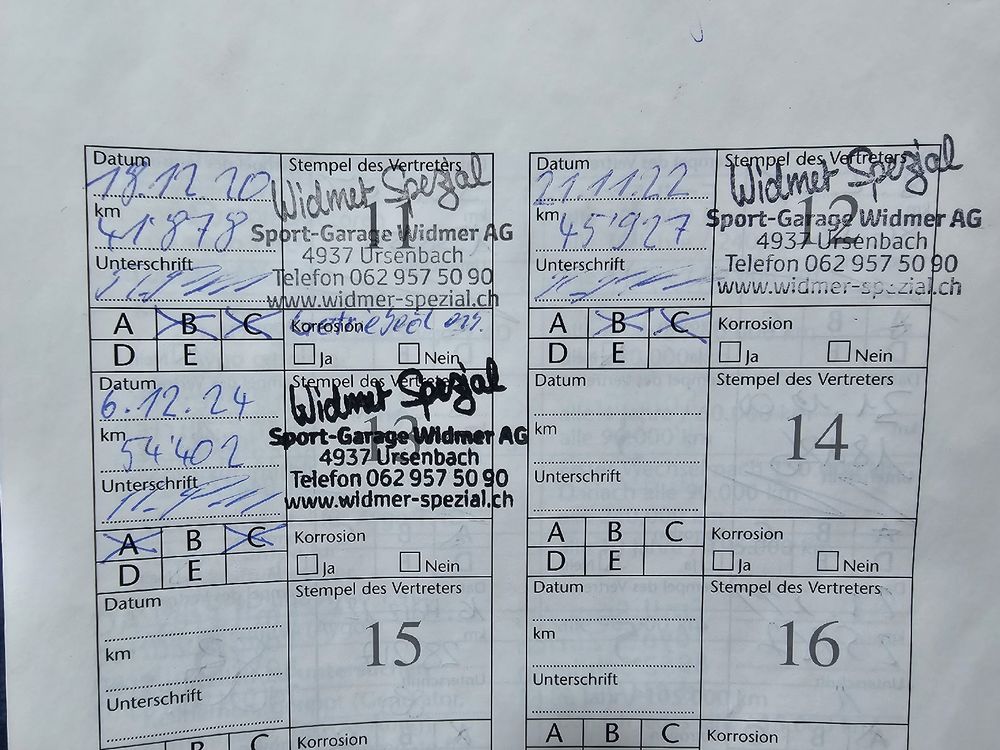 Datum
18.12.20
km
41'878
Unterschrift
Stempel des Vertreters
11
Widmer Spezial
Sport-Garage Widmer AG
4937 Ursenbach
Telefon 062 957 50 90
www.widmer-spezial.ch
A B C
D E
Korrosion
Ja Nein
Datum
21.11.22
km
45'927
Unterschrift
Stempel des Vertreters
12
Widmer Spezial
Sport-Garage Widmer AG
4937 Ursenbach
Telefon 062 957 50 90
www.widmer-spezial.ch
A B C
D E
Korrosion
Ja Nein
Datum
6.12.24
km
54'402
Unterschrift
Stempel des Vertreters
13
Widmer Spezial
Sport-Garage Widmer AG
4937 Ursenbach
Telefon 062 957 50 90
www.widmer-spezial.ch
A B C
D E
Korrosion
Ja Nein
Datum
km
Unterschrift
Stempel des Vertreters
14
A B C
D E
Korrosion
Ja Nein
Datum
km
Unterschrift
Stempel des Vertreters
15
B C
Korrosion
Datum
km
Unterschrift
Stempel des Vertreters
16
A B C
Korrosion